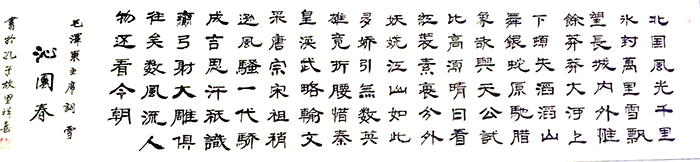 北国風光千里
冰封萬里雪飄
望長城内外惟
餘莽莽大河上
下頓失滔滔山
舞銀蛇原馳腊
象欲與天公試
比高須晴日看
紅裝素裹分外
妖娆江山如此
多嬌引無數英
雄競折腰惜秦
皇漢武略輸文
采唐宗宋祖稍
遜風騷一代驕
成吉思汗祇識
彎弓射大雕俱
往矣數風流人
物还看今朝
毛澤東主席詞 雪
沁園春
書於孔子故里